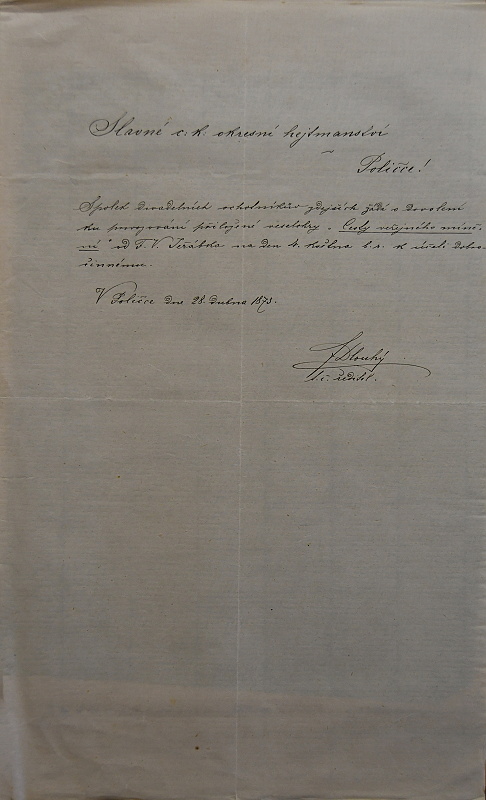 Slavné c. k. okresní hejtmanství
Poličce!
Spolek divadelních ochotníkův zdejších žádá o dovolení
ku provozování přiložené veselohry „Cesty veřejného míně-
ní" od F. V. Jeřábka na den 4. května t. r. k účeli dobro-
činnému.
V Poličce dne 28. dubna 1873.
Dlouhý
t. č. ředitel.